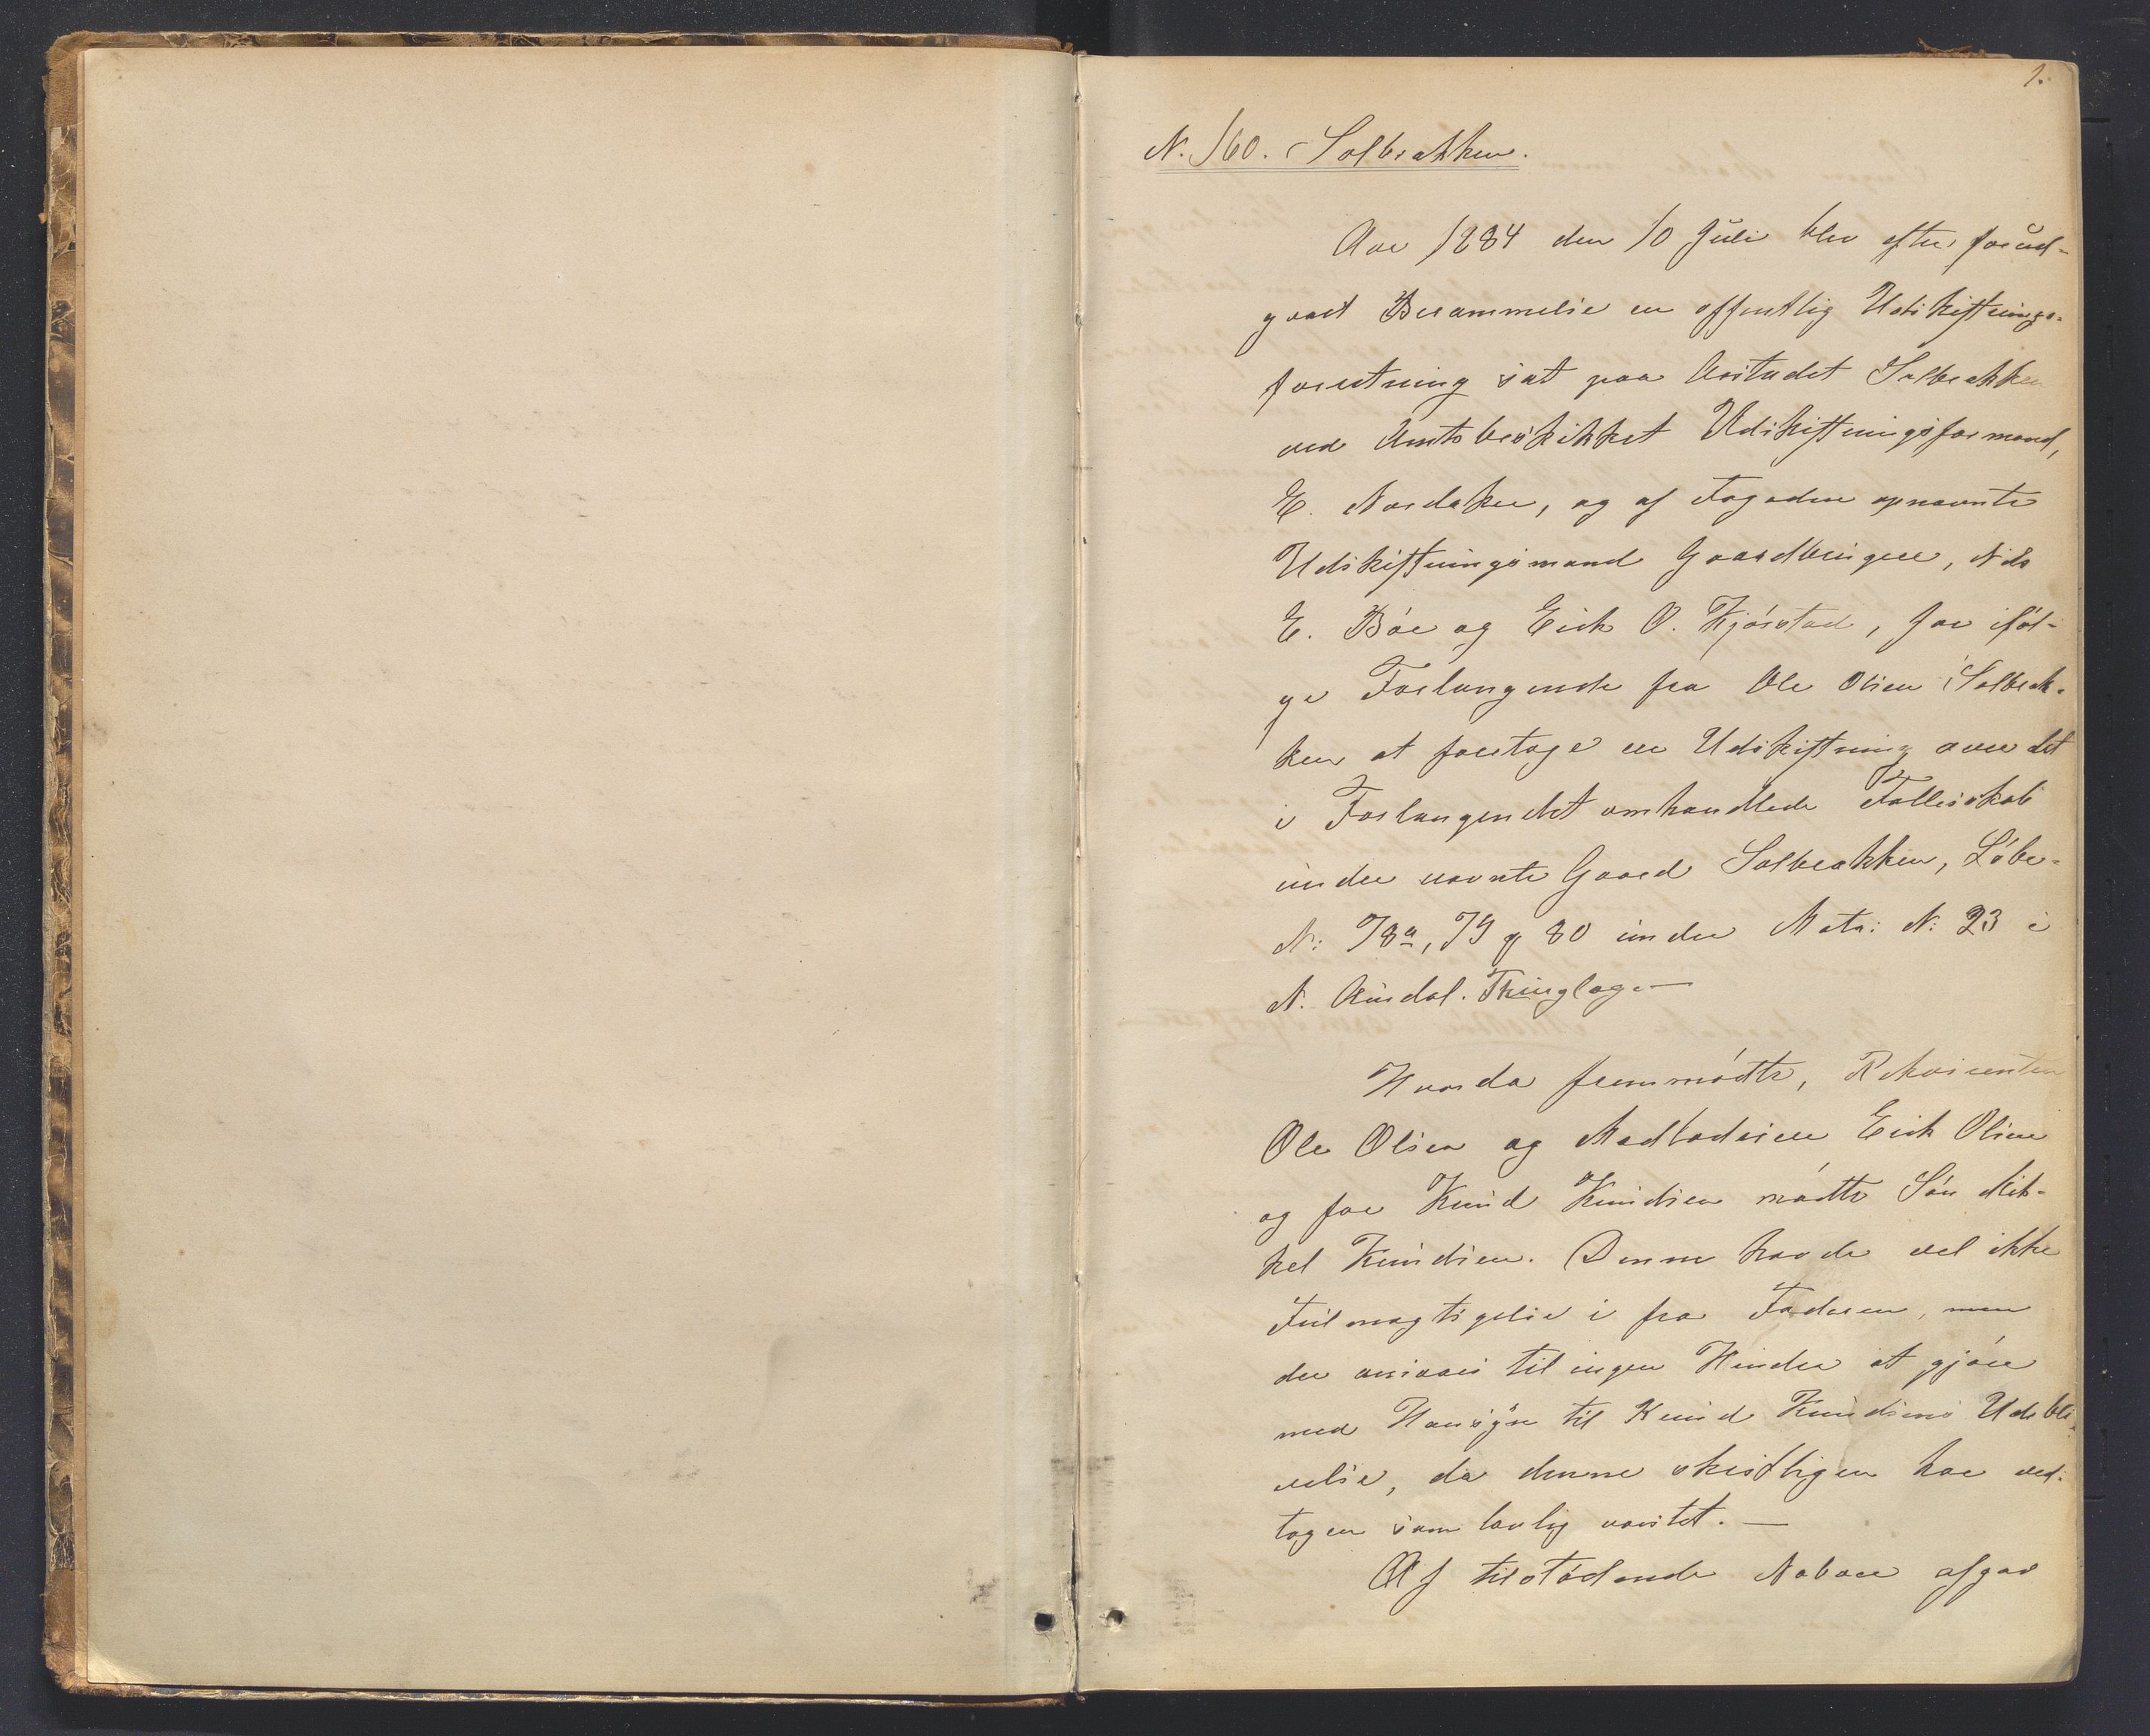 1.
N. 160. Solbrækken.
Aar 1884 den 10 Juli blev efter forud-
gaaet Berammelse en offentlig Udskiftnings-
foretning sat paa Aastædet Solbrækken
ved Amtsbeskikket Udskiftningsformand,
E. Nordaker, og af Fogeden opnævnte
Udskiftningsmænd Gaardbrugere, Nils
E. Bøe og Erik O. Kjørstad, for iføl-
ge Forlangende fra Ole Olsen Solbræk-
ken at foretage en Udskiftning over det
i Forlangendet omhandlede Fællesskab
under nævnte Gaard Solbrækken, Løbe-
N: 78a, 79 og 80 under Matr: N: 23 i
N. Aurdal. Thinglag.—
Hvorda fremmødte, Rekvirenten
Ole Olsen og Medlodseier Erik Olsen
og for Knud Knudsen mødte Søn Mik-
kel Knudsen. Denne havde vel ikke
Fuldmagtigelse i fra Faderen, men
der ansaaes til ingen Hinder at gjøre
med Hensyn til Knud Knudsens Udebli-
velse, da denne skriftligen har ved-
tagen som lovlig varslet.—
Af tilstødende Naboer afgav